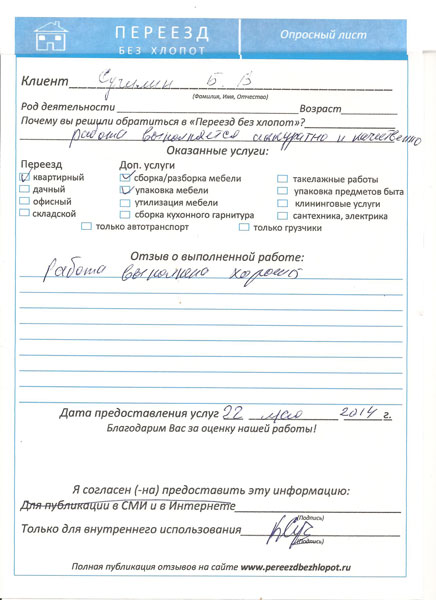 ПЕРЕЕЗД
БЕЗ ХЛОПОТ
Опросный лист
Клиент Сучилин Б В
(Фамилия, Имя, Отчество)
Род деятельности Возраст
Почему вы решили обратиться в «Переезд без хлопот»?
работа выполняется аккуратно и качественно
Оказанные услуги:
Переезд Доп. услуги
квартирный сборка/разборка мебели такелажные работы
дачный упаковка мебели упаковка предметов быта
офисный утилизация мебели клининговые услуги
складской сборка кухонного гарнитура сантехника, электрика
только автотранспорт только грузчики
Отзыв о выполненной работе:
Работа выполнена хорошо
Дата предоставления услуг 22 мая 2014 г.
Благодарим Вас за оценку нашей работы!
Я согласен (-на) предоставить эту информацию:
Для публикации в СМИ и в Интернете
(Подпись)
Только для внутреннего использования
(Подпись)
Полная публикация отзывов на сайте www.pereezdbezhlopot.ru